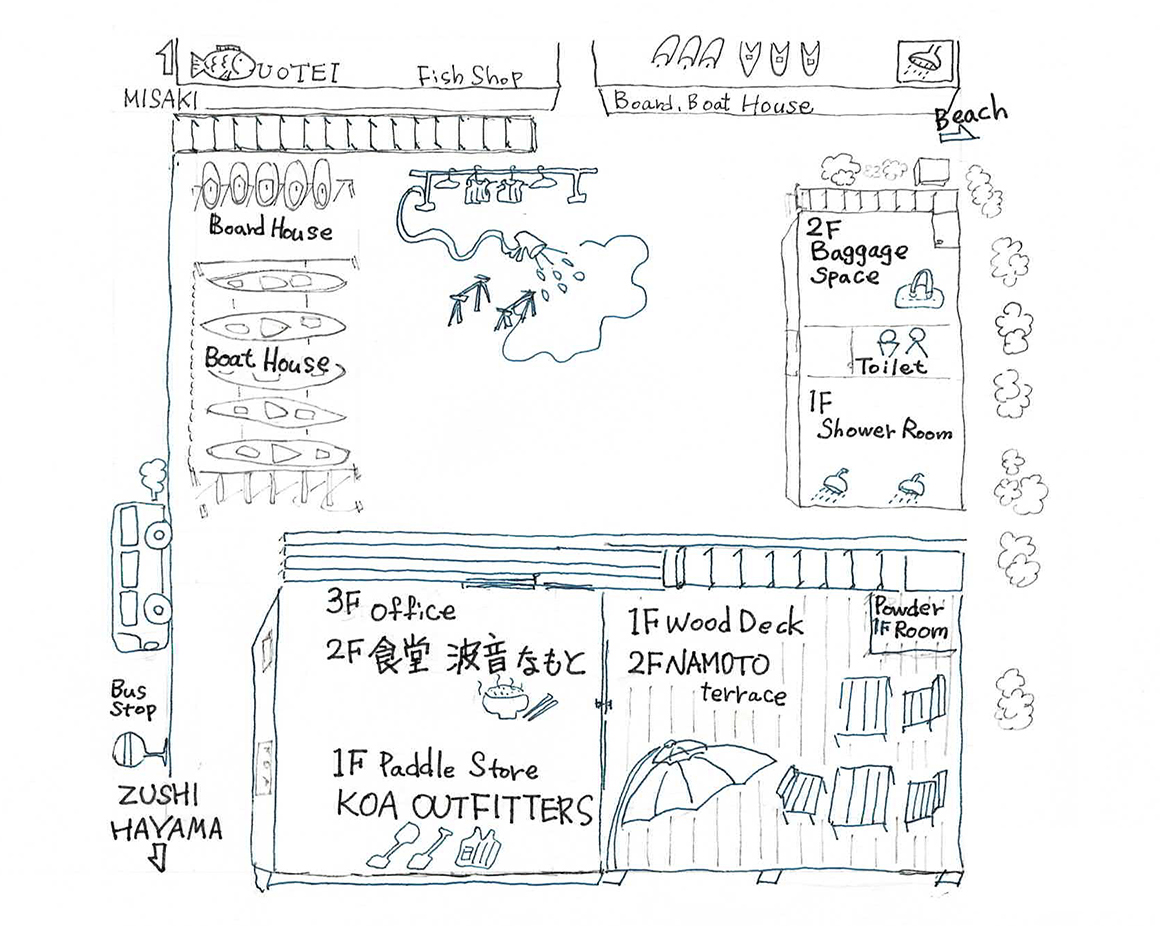 UOTEI
Fish Shop
MISAKI
Board, Boat House
Beach
Board House
Boat House
2F
Baggage
Space
Toilet
1F
Shower Room
3F office
2F 食堂 波音 なもと
1F Paddle Store
KOA OUTFITTERS
1F Wood Deck
2F NAMOTO
terrace
Powder
1F Room
Bus
Stop
ZUSHI
HAYAMA